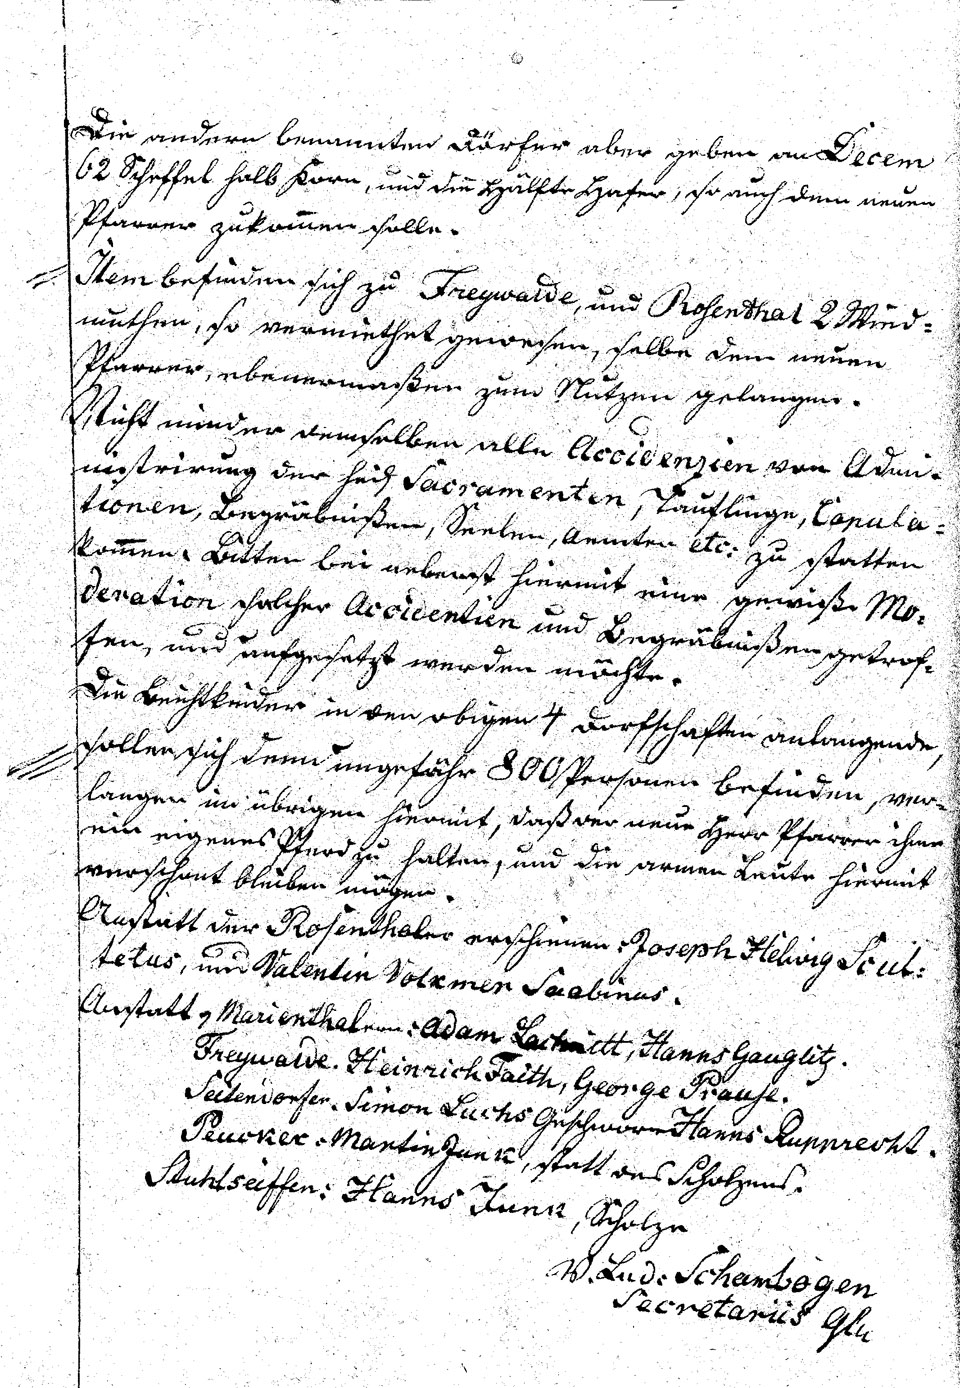 Die andern benannten Dörfer aber geben an Decem
62 Scheffel halb Korn, und die Hälfte Hafer, so auch dem neuen
Pfarrer zukom̄en solle.
Item befinden sich zu Freywalde, und Rosenthal 2 Wied-
muthen, so vermiethet gewesen, selbe dem neuen
Pfarrer, ebenermaßen zum Nutzen gelangen.
Nicht minder demselben alle Accidenzien von Admi-
nistrirung der heil Sacramenten, Täuflinge, Copula-
tionen, Begräbnißen, Seelen, Aemter etc: zu statten
kom̄en. Bitten bei nebenst hiermit eine gewiße Mo-
deration solcher Accidentien und Begräbnißen getrof-
fen, und aufgesetzt werden möchte.
Die Beichtkinder in den obigen 4 Dorfschaften anlangende,
sollen sich denn ungefähr 800 Personen befinden, ver-
langen im übrigen hiermit, daß der neue Herr Pfarrer ihme
ein eigenes Pferd zu halten, und die armen Leute hiermit
verschont bleiben mögen.
Anstatt der Rosenthaler erschienen: Joseph Helwig Scul-
tetus, und Valentin Volkmer Scabinus.
Anstatt Marienthalern: Adam Lachnitt, Hanns Gauglitz.
Freywalde. Heinrich Faith, George Prause.
Seitendorfer. Simon Luchs Geschworne Hanns Rupprecht.
Peucker. Martin Junk, statt des Scholzens.
Stuhlseiffen: Hanns Junk, Scholze
W. Lud. Schambogen
Secretariis Glu